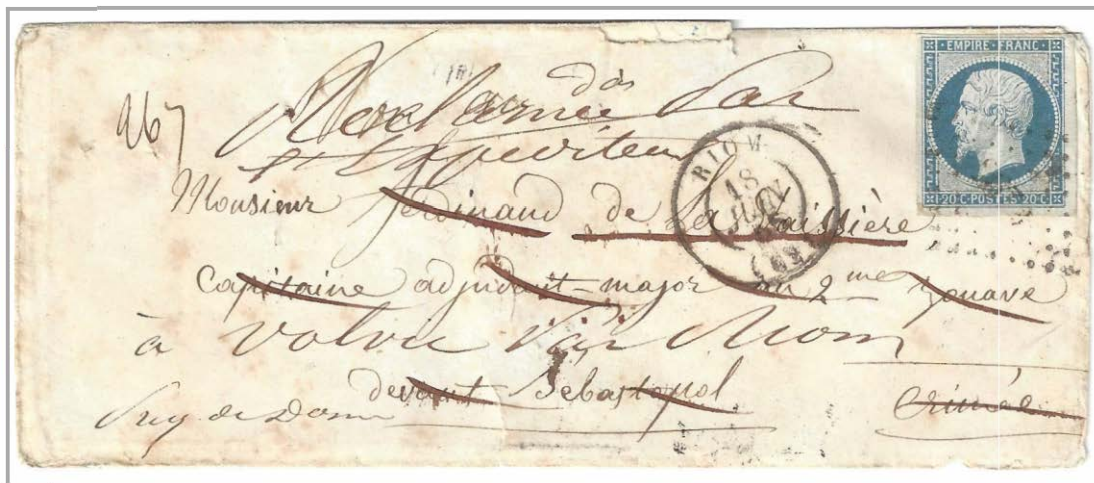 EMPIRE FRANC
20 C·POSTES 20 C
267
dos
Réclamée Par
l'expéditeur
RIOM
18
JUIN
(62)
Monsieur Ferdinand de La
capitaine adjudant-major au 2me zouave
à Volvic Riom
devant Sébastopol
Crimée
Puy de Dome